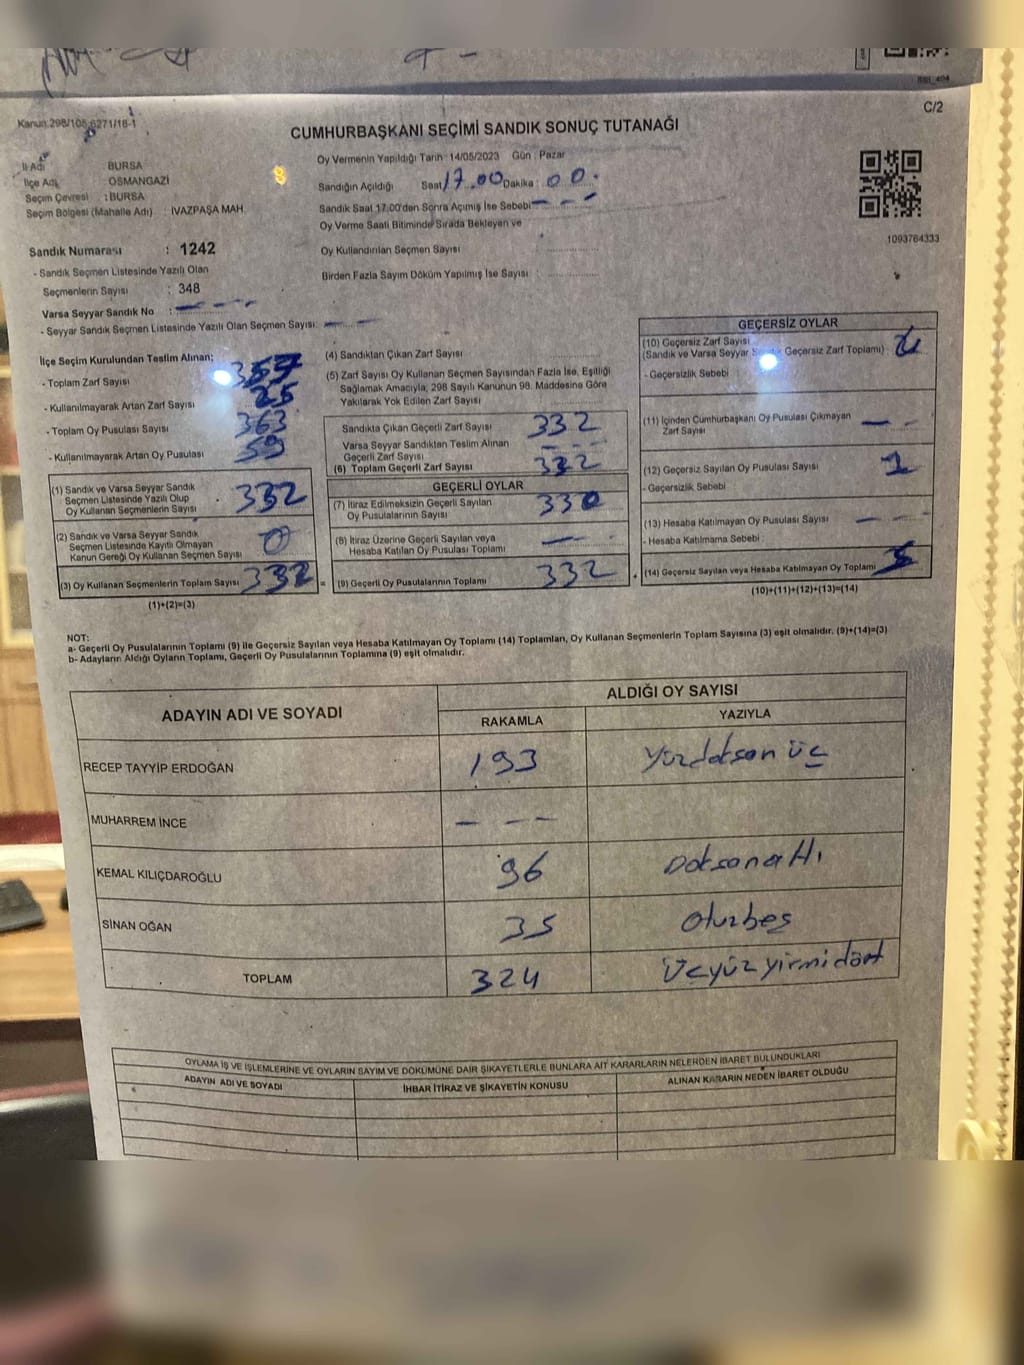 C/2
Kanun:298/105-6271/16-1
CUMHURBAŞKANI SEÇİMİ SANDIK SONUÇ TUTANAĞI
İl Adı BURSA
İlçe Adı OSMANGAZİ
Seçim Çevresi : BURSA
Seçim Bölgesi (Mahalle Adı) : İVAZPAŞA MAH.
Oy Vermenin Yapıldığı Tarih : 14/05/2023 Gün : Pazar
Sandığın Açıldığı Saat 17.00 Dakika : 00.
Sandık Saat 17:00'den Sonra Açımış İse Sebebi
Oy Verme Saati Bitiminde Sırada Bekleyen ve
Oy Kullandırılan Seçmen Sayısı
Birden Fazla Sayım Döküm Yapılmış İse Sayısı :
1093764333
Sandık Numarası : 1242
- Sandık Seçmen Listesinde Yazılı Olan
Seçmenlerin Sayısı : 348
Varsa Seyyar Sandık No : - - -
- Seyyar Sandık Seçmen Listesinde Yazılı Olan Seçmen Sayısı: - -
İlçe Seçim Kurulundan Teslim Alınan;
- Toplam Zarf Sayısı 357
- Kullanılmayarak Artan Zarf Sayısı 25
- Toplam Oy Pusulası Sayısı 363
- Kullanılmayarak Artan Oy Pusulası 59
(1) Sandık ve Varsa Seyyar Sandık
Seçmen Listesinde Yazılı Olup
Oy Kullanan Seçmenlerin Sayısı 332
(2) Sandık ve Varsa Seyyar Sandık
Seçmen Listesinde Kayıtlı Olmayan
Kanun Gereği Oy Kullanan Seçmen Sayısı 0
(3) Oy Kullanan Seçmenlerin Toplam Sayısı 332 =
(1)+(2)=(3)
(4) Sandıktan Çıkan Zarf Sayısı
(5) Zarf Sayısı Oy Kullanan Seçmen Sayısından Fazla İse, Eşitliği
Sağlamak Amacıyla, 298 Sayılı Kanunun 98. Maddesine Göre
Yakılarak Yok Edilen Zarf Sayısı
Sandıkta Çıkan Geçerli Zarf Sayısı 332
Varsa Seyyar Sandıktan Teslim Alınan
Geçerli Zarf Sayısı - - -
(6) Toplam Geçerli Zarf Sayısı 332
GEÇERLİ OYLAR
(7) İtiraz Edilmeksizin Geçerli Sayılan
Oy Pusulalarının Sayısı 330
(8) İtiraz Üzerine Geçerli Sayılan veya
Hesaba Katılan Oy Pusulası Toplamı - - -
(9) Geçerli Oy Pusulalarının Toplamı 332
GEÇERSİZ OYLAR
(10) Geçersiz Zarf Sayısı
(Sandık ve Varsa Seyyar Sandık Geçersiz Zarf Toplamı)
- Geçersizlik Sebebi :
(11) İçinden Cumhurbaşkanı Oy Pusulası Çıkmayan
Zarf Sayısı - -
(12) Geçersiz Sayılan Oy Pusulası Sayısı 1
- Geçersizlik Sebebi
(13) Hesaba Katılmayan Oy Pusulası Sayısı - - -
- Hesaba Katılmama Sebebi
(14) Geçersiz Sayılan veya Hesaba Katılmayan Oy Toplamı 5
(10)+(11)+(12)+(13)=(14)
NOT:
a- Geçerli Oy Pusulalarının Toplamı (9) ile Geçersiz Sayılan veya Hesaba Katılmayan Oy Toplamı (14) Toplamları, Oy Kullanan Seçmenlerin Toplam Sayısına (3) eşit olmalıdır. (9)+(14)=(3)
b- Adayların Aldığı Oyların Toplamı, Geçerli Oy Pusulalarının Toplamına (9) eşit olmalıdır.
ADAYIN ADI VE SOYADI
ALDIĞI OY SAYISI
RAKAMLA YAZIYLA
RECEP TAYYİP ERDOĞAN 193 Yüzdoksan üç
MUHARREM İNCE - - -
KEMAL KILIÇDAROĞLU 96 Doksanaltı
SİNAN OĞAN 35 Oturbeş
TOPLAM 324 Üçyüz yirmi dört
OYLAMA İŞ VE İŞLEMLERİNE VE OYLARIN SAYIM VE DÖKÜMÜNE DAİR ŞİKAYETLERLE BUNLARA AİT KARARLARIN NELERDEN İBARET BULUNDUKLARI
ADAYIN ADI VE SOYADI İHBAR İTİRAZ VE ŞİKAYETİN KONUSU ALINAN KARARIN NEDEN İBARET OLDUĞU